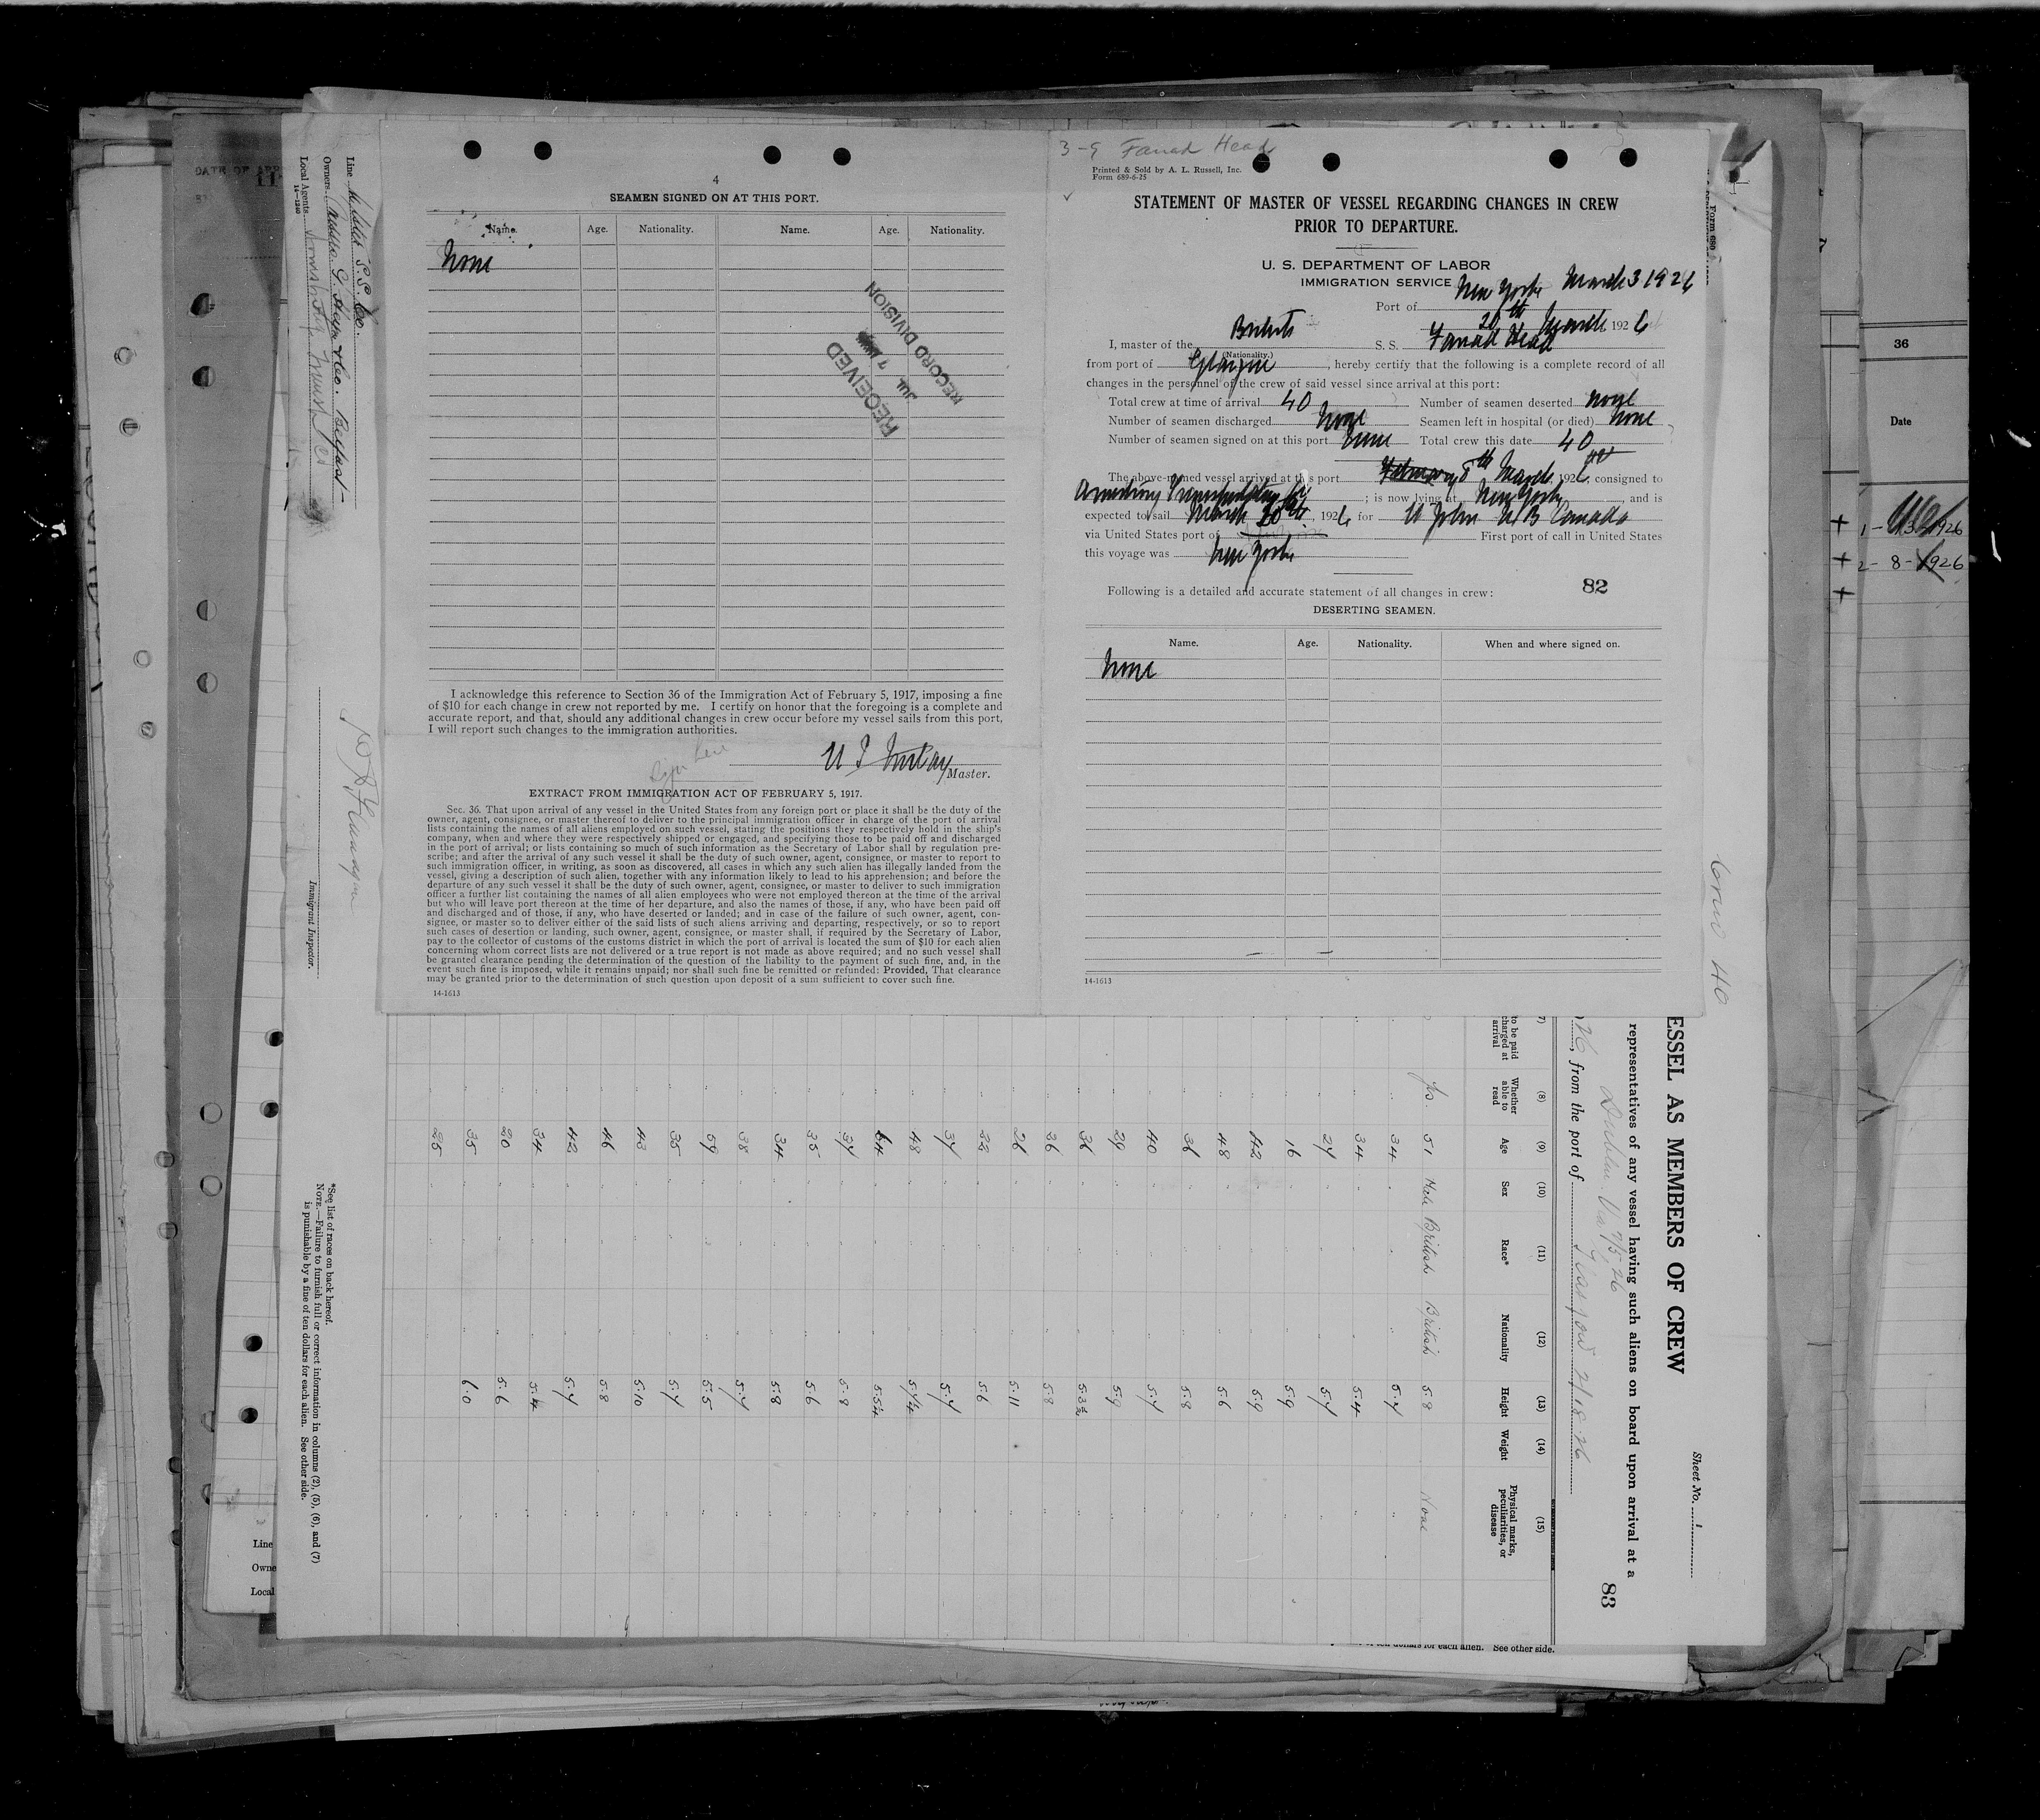 4
SEAMEN SIGNED ON AT THIS PORT.
Name. Age. Nationality. Name. Age. Nationality.
None
RECEIVED
JUL 7
RECORD DIVISION
I acknowledge this reference to Section 36 of the Immigration Act of February 5, 1917, imposing a fine
of $10 for each change in crew not reported by me. I certify on honor that the foregoing is a complete and
accurate report, and that, should any additional changes in crew occur before my vessel sails from this port,
I will report such changes to the immigration authorities.
Master.
EXTRACT FROM IMMIGRATION ACT OF FEBRUARY 5, 1917.
Sec. 36. That upon arrival of any vessel in the United States from any foreign port or place it shall be the duty of the
owner, agent, consignee, or master thereof to deliver to the principal immigration officer in charge of the port of arrival
lists containing the names of all aliens employed on such vessel, stating the positions they respectively hold in the ship's
company, when and where they were respectively shipped or engaged, and specifying those to be paid off and discharged
in the port of arrival; or lists containing so much of such information as the Secretary of Labor shall by regulation pre-
scribe; and after the arrival of any such vessel it shall be the duty of such owner, agent, consignee, or master to report to
such immigration officer, in writing, as soon as discovered, all cases in which any such alien has illegally landed from the
vessel, giving a description of such alien, together with any information likely to lead to his apprehension; and before the
departure of any such vessel it shall be the duty of such owner, agent, consignee, or master to deliver to such immigration
officer a further list containing the names of all alien employees who were not employed thereon at the time of the arrival
but who will leave port thereon at the time of her departure, and also the names of those, if any, who have been paid off
and discharged and of those, if any, who have deserted or landed; and in case of the failure of such owner, agent, con-
signee, or master so to deliver either of the said lists of such aliens arriving and departing, respectively, or so to report
such cases of desertion or landing, such owner, agent, consignee, or master shall, if required by the Secretary of Labor,
pay to the collector of customs of the customs district in which the port of arrival is located the sum of $10 for each alien
concerning whom correct lists are not delivered or a true report is not made as above required; and no such vessel shall
be granted clearance pending the determination of the question of the liability to the payment of such fine, and, in the
event such fine is imposed, while it remains unpaid; nor shall such fine be remitted or refunded: Provided, That clearance
may be granted prior to the determination of such question upon deposit of a sum sufficient to cover such fine.
14-1613
3-9 Fanad Head
Printed & Sold by A. L. Russell, Inc.
Form 689-6-25
STATEMENT OF MASTER OF VESSEL REGARDING CHANGES IN CREW
PRIOR TO DEPARTURE.
U. S. DEPARTMENT OF LABOR
IMMIGRATION SERVICE
Port of New York March 3 1926
20th March 1926
I, master of the British S. S. Fanad Head
(Nationality.)
from port of Glasgow, hereby certify that the following is a complete record of all
changes in the personnel of the crew of said vessel since arrival at this port:
Total crew at time of arrival 40 Number of seamen deserted none
Number of seamen discharged None Seamen left in hospital (or died) None
Number of seamen signed on at this port None Total crew this date 40
The above-named vessel arrived at this port February 8th March, 1926, consigned to
; is now lying at New York, and is
expected to sail March 20th, 1926 for St John N B Canada
via United States port of First port of call in United States
this voyage was New York
82
Following is a detailed and accurate statement of all changes in crew:
DESERTING SEAMEN.
Name. Age. Nationality. When and where signed on.
None
14-1613
Crew 40
ESSEL AS MEMBERS OF CREW
Sheet No. 1
representatives of any vessel having such aliens on board upon arrival at a
26, from the port of Glasgow 2/18/26
83
(7) (8) (9) (10) (11) (12) (13) (14) (15)
to be paid charged at arrival
Whether able to read
Age
Sex
Race*
Nationality
Height
Weight
Physical marks, peculiarities, or disease
yes. 51 Male British British 5.8 None
34 5.7
34 5.4
27 5.7
16 5.9
42 5.9
48 5.6
36 5.8
40 5.7
29 5.9
36 5.3½
36 5.8
26 5.11
22 5.6
37 5.7
48 5.7¼
64 5.5¼
37 5.8
35 5.6
34 5.8
38 5.7
59 5.5
35 5.7
43 5.10
46 5.8
42 5.7
34 5.4
20 5.6
35 6.0
25
*See list of races on back hereof.
NOTE.—Failure to furnish full or correct information in columns (2), (5), (6), and (7)
is punishable by a fine of ten dollars for each alien. See other side.
Immigrant Inspector.
Line S.S. Co.
Owners Messrs. G. Heyn & Co. Belfast
Local Agents
14-1240
DATE OF
36
Date
1- 3-1926
2- 8-1926
Line
Owne
Local
of ten dollars for each alien. See other side.